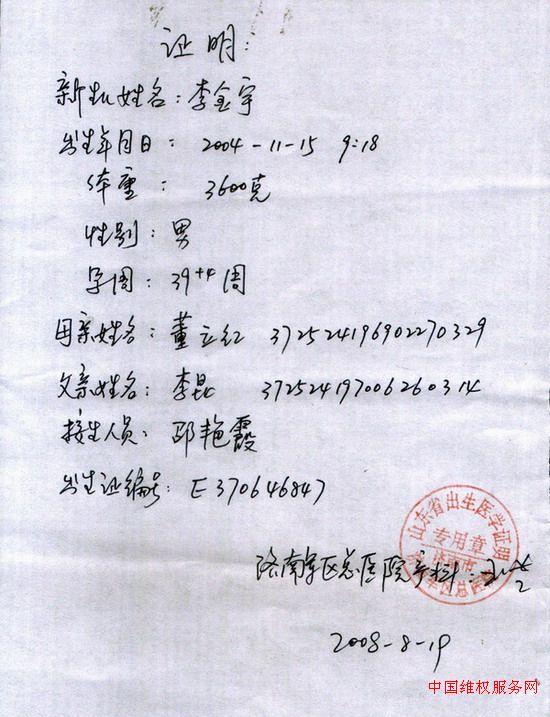 证明:
新生儿姓名:李金宇
出生年月日: 2004-11-15 9:18
体重: 3600克
性别:男
孕周:39+4周
母亲姓名:董立红 372524196902270329
父亲姓名:李昆 372524197006260314
接生人员:邵艳霞
出生证编号:E370646847
山东省出生医学证明
专用章
济南军区总医院产科:
2008-8-19
中国维权服务网